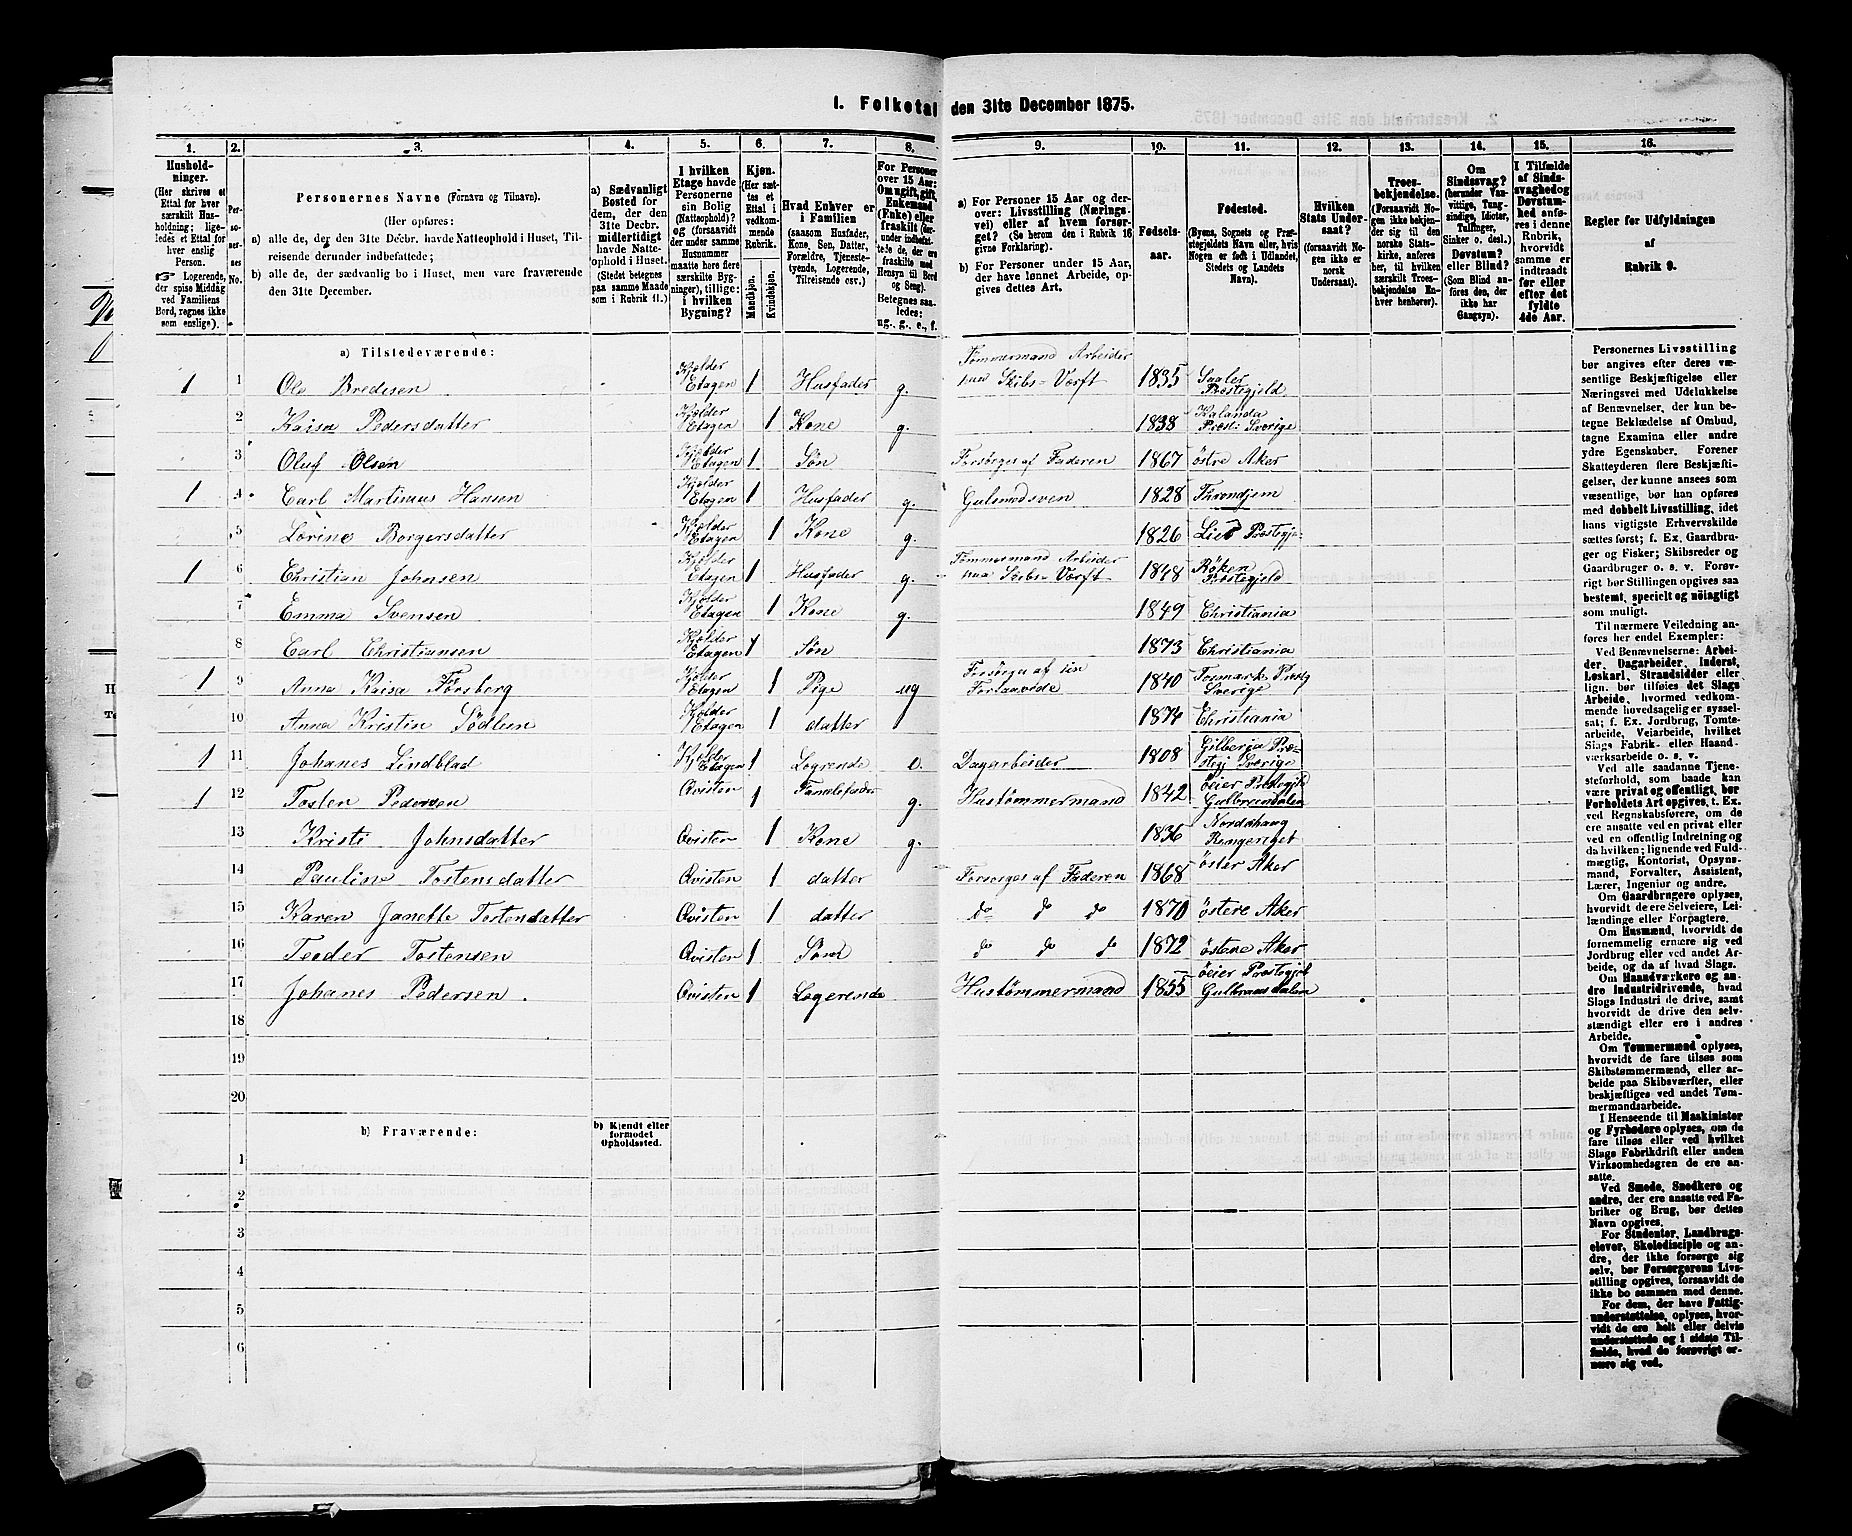 I. Folketal den 31te December 1875.
1. 2. 3. 4. 5. 6. 7. 8. 9. 10. 11. 12. 13. 14. 15. 16.
Husholdninger.
(Her skrives et Ettal for hver særskilt Husholdning; ligeledes et Ettal for hver enslig Person.
☞ Logerende, der spise Middag ved Familiens Bord, regnes ikke som enslige).
Personernes No.
Personernes Navne (Fornavn og Tilnavn).
(Her opføres:
a) alle de, der den 31te Decbr. havde Natteophold i Huset, Tilreisende derunder indbefattede;
b) alle de, der sædvanlig bo i Huset, men vare fraværende den 31te December.
a) Sædvanligt Bosted for dem, der den 31te Decbr. midlertidigt havde Natteophold i Huset.
(Stedet betegnes paa samme Maade som i Rubrik 11.)
I hvilken Etage havde Personerne sin Bolig (Natteophold)? og (forsaavidt der under samme Husnummer maatte høre flere særskilte Bygninger), tillige: i hvilken Bygning?
Kjøn.
(Her sættes et Ettal i vedkommende Rubrik.
Mandkjøn. Kvindekjøn.
Hvad Enhver er i Familien
(saasom Husfader, Kone, Søn, Datter, Forældre, Tjenestetyende, Logerende, Tilreisende osv.)
For Personer over 15 Aar: Om ugift, gift, Enkemand (Enke) eller fraskilt
Betegnes saaledes: ug., g., e., f.
a) For Personer 15 Aar og derover: Livsstilling (Næringsvei) eller af hvem forsørget? (Se herom den i Rubrik 16 givne Forklaring).
b) For Personer under 15 Aar, der have lønnet Arbeide, opgives dettes Art.
Fødselsaar.
Fødested.
(Byens, Sognets og Præstegjeldets Navn eller, hvis Nogen er født i Udlandet, Stedets og Landets Navn).
Hvilken Stats Undersaat?
(forsaavidt Nogen ikke er norsk Undersaat).
Troesbekjendelse.
(Forsaavidt Nogen ikke bekjender sig til den norske Statskirke, anføres her, til hvilken særskilt Troesbekjendelse Enhver henhører).
Om Sindssvag? (herunder Vanvittige, Tungsindige, Idioter, Tullinger, Sinker o. desl.) Døvstum? eller Blind?
(Som Blind anføres den, der ikke har Gangsyn).
I Tilfælde af Sindssvaghed og Døvstumhed anføres i denne Rubrik, hvorvidt samme er indtraadt før eller efter det fyldte 4de Aar.
Regler for Udfyldningen af Rubrik 9.
a) Tilstedeværende:
1 1 Ole Bredesen Kjelder Etagen 1 Husfader g. Tømmermand Arbeider paa Skibs-Værft 1835 Præstegjeld
2 Kaisa Pedersdatter Kjelder Etagen 1 Kone g. 1838 Kalanda Præst: Sverige
3 Oluf Olsen Kjelder Etagen 1 Søn Forsørges af Faderen 1867 östre Aker
1 4 Carl Martinus Hansen Kjelder Etagen 1 Husfader g. Gulsmedsven 1828 Throndjem
5 Lorine Borgersdatter Kjelder Etagen 1 Kone g. 1826 Lier Præstegj:
1 6 Christian Johnsen Kjelder Etagen 1 Husfader g. Tømmermand Arbeider paa Skibs-Værft 1848 Röken Præstegjeld
7 Emma Svensen Kjelder Etagen 1 Kone g. 1849 Christiania
8 Carl Christiansen Kjelder Etagen 1 Søn 1873 Christiania
1 9 Anna Kaisa Forsberg Kjelder Etagen 1 Pige ug Forsörges af sin Forlaavede 1840 Præstg Sverige
10 Anna Kristin Kjelder Etagen 1 datter 1874 Christiania
1 11 Johanes Lindblad Kjelder Etagen 1 Logrende e. Dagarbeider 1808 Gilberga Præstegj Sverige
1 12 Tosten Pedersen Qvisten 1 g. Hustømmermand 1842 öeier Præstegjeld Gulbransdalen
13 Kristi Johnsdatter Qvisten 1 Kone g. 1836 Nordrhaug Ringeriget
14 Pauline Tostensdatter Qvisten 1 datter Forsorges af Faderen 1868 öster Aker
15 Karen Janette Tostendatter Qvisten 1 datter do do do 1870 östere Aker
16 Teoder Tostensen Qvisten 1 Søn do do do 1872 östere Aker
17 Johanes Pedersen. Qvisten 1 Logerende Hustømmermand 1855 öeier Præstegjel Gulbransdalen
18
19
20
b) Fraværende:
b) Kjendt eller formodet Opholdssted.
1
2
3
4
5
6
Personernes Livsstilling bør angives efter deres væsentlige Beskjæftigelse eller Næringsvei med Udelukkelse af Benævnelser, der kun betegne Beklædelse af Ombud, tagne Examina eller andre ydre Egenskaber. Forener Skatteyderen flere Beskjæftigelser, der kunne ansees som væsentlige, bør han opføres med dobbelt Livsstilling, idet hans vigtigste Erhvervskilde sættes først; f. Ex. Gaardbruger og Fisker; Skibsreder og Gaardbruger o. s. v. Forøvrigt bør Stillingen opgives saa bestemt, specielt og nöiagtigt som muligt.
Til nærmere Veiledning anføres her endel Exempler:
Ved Benævnelserne: Arbeider, Dagarbeider, Inderst, Løskarl, Strandsidder eller lign. bør tilføies det Slags Arbeide, hvormed vedkommende hovedsagelig er sysselsat; f. Ex. Jordbrug, Tomtearbeide, Veiarbeide, hvilket Slags Fabrik- eller Haandværksarbeide o. s. v.
Ved alle saadanne Tjenesteforhold, som baade kan være privat og offentligt, bør Forholdets Art opgives, t. Ex. ved Regnskabsførere, om de ere ansatte ved en privat eller en offentlig Indretning og da hvilken; lignende ved Fuldmægtig, Kontorist, Opsynsmand, Forvalter, Assistent, Lærer, Ingeniør og andre.
Om Gaardbrugere oplyses, hvorvidt de ere Selveiere, Leilændinge eller Forpagtere.
Om Husmænd, hvorvidt de fornemmelig ernære sig ved Jordbrug eller ved andet Arbeide, og da af hvad Slags.
Om Haandværkere og andre Industridrivende, hvad Slags Industri de drive, samt hvorvidt de drive den selvstændigt eller ere i andres Arbeide.
Om Tømmermænd oplyses, hvorvidt de fare tilsøs som Skibstømmermænd, eller arbeide paa Skibsværfter, eller beskjæftiges ved andet Tømmermandsarbeide.
I Henseende til Maskinister og Fyrbødere oplyses, om de fare tilsøs eller ved hvilket Slags Fabrikdrift eller anden Virksomhedsgren de ere ansatte.
Ved Smede, Snedkere og andre, der ere ansatte ved Fabriker og Brug, bør dettes Navn opgives.
For Studenter, Landbrugselever, Skoledisciple og andre, der ikke forsørge sig selv, bør Forsørgerens Livsstilling opgives, forsaavidt de ikke bo sammen med denne.
For dem, der have Fattigunderstøttelse, oplyses, hvorvidt de ere helt eller delvis understøttede og i sidste Tilfælde, hvad de forøvrigt ernære sig ved.